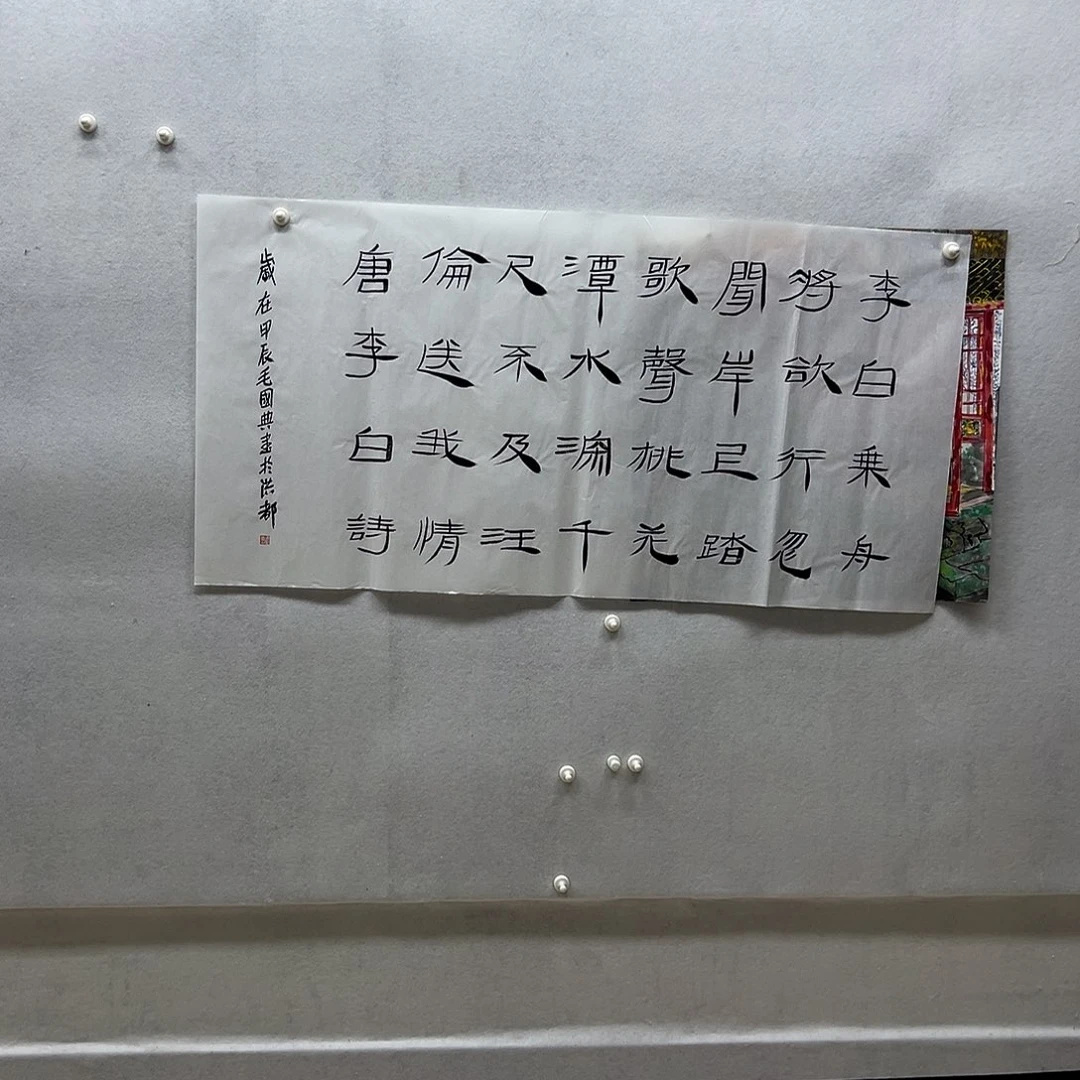 李白乘舟
將欲行忽
聞岸上踏
歌聲桃花
潭水深千
尺不及汪
倫送我情
唐李白詩
歲在甲辰毛國典書於洪都